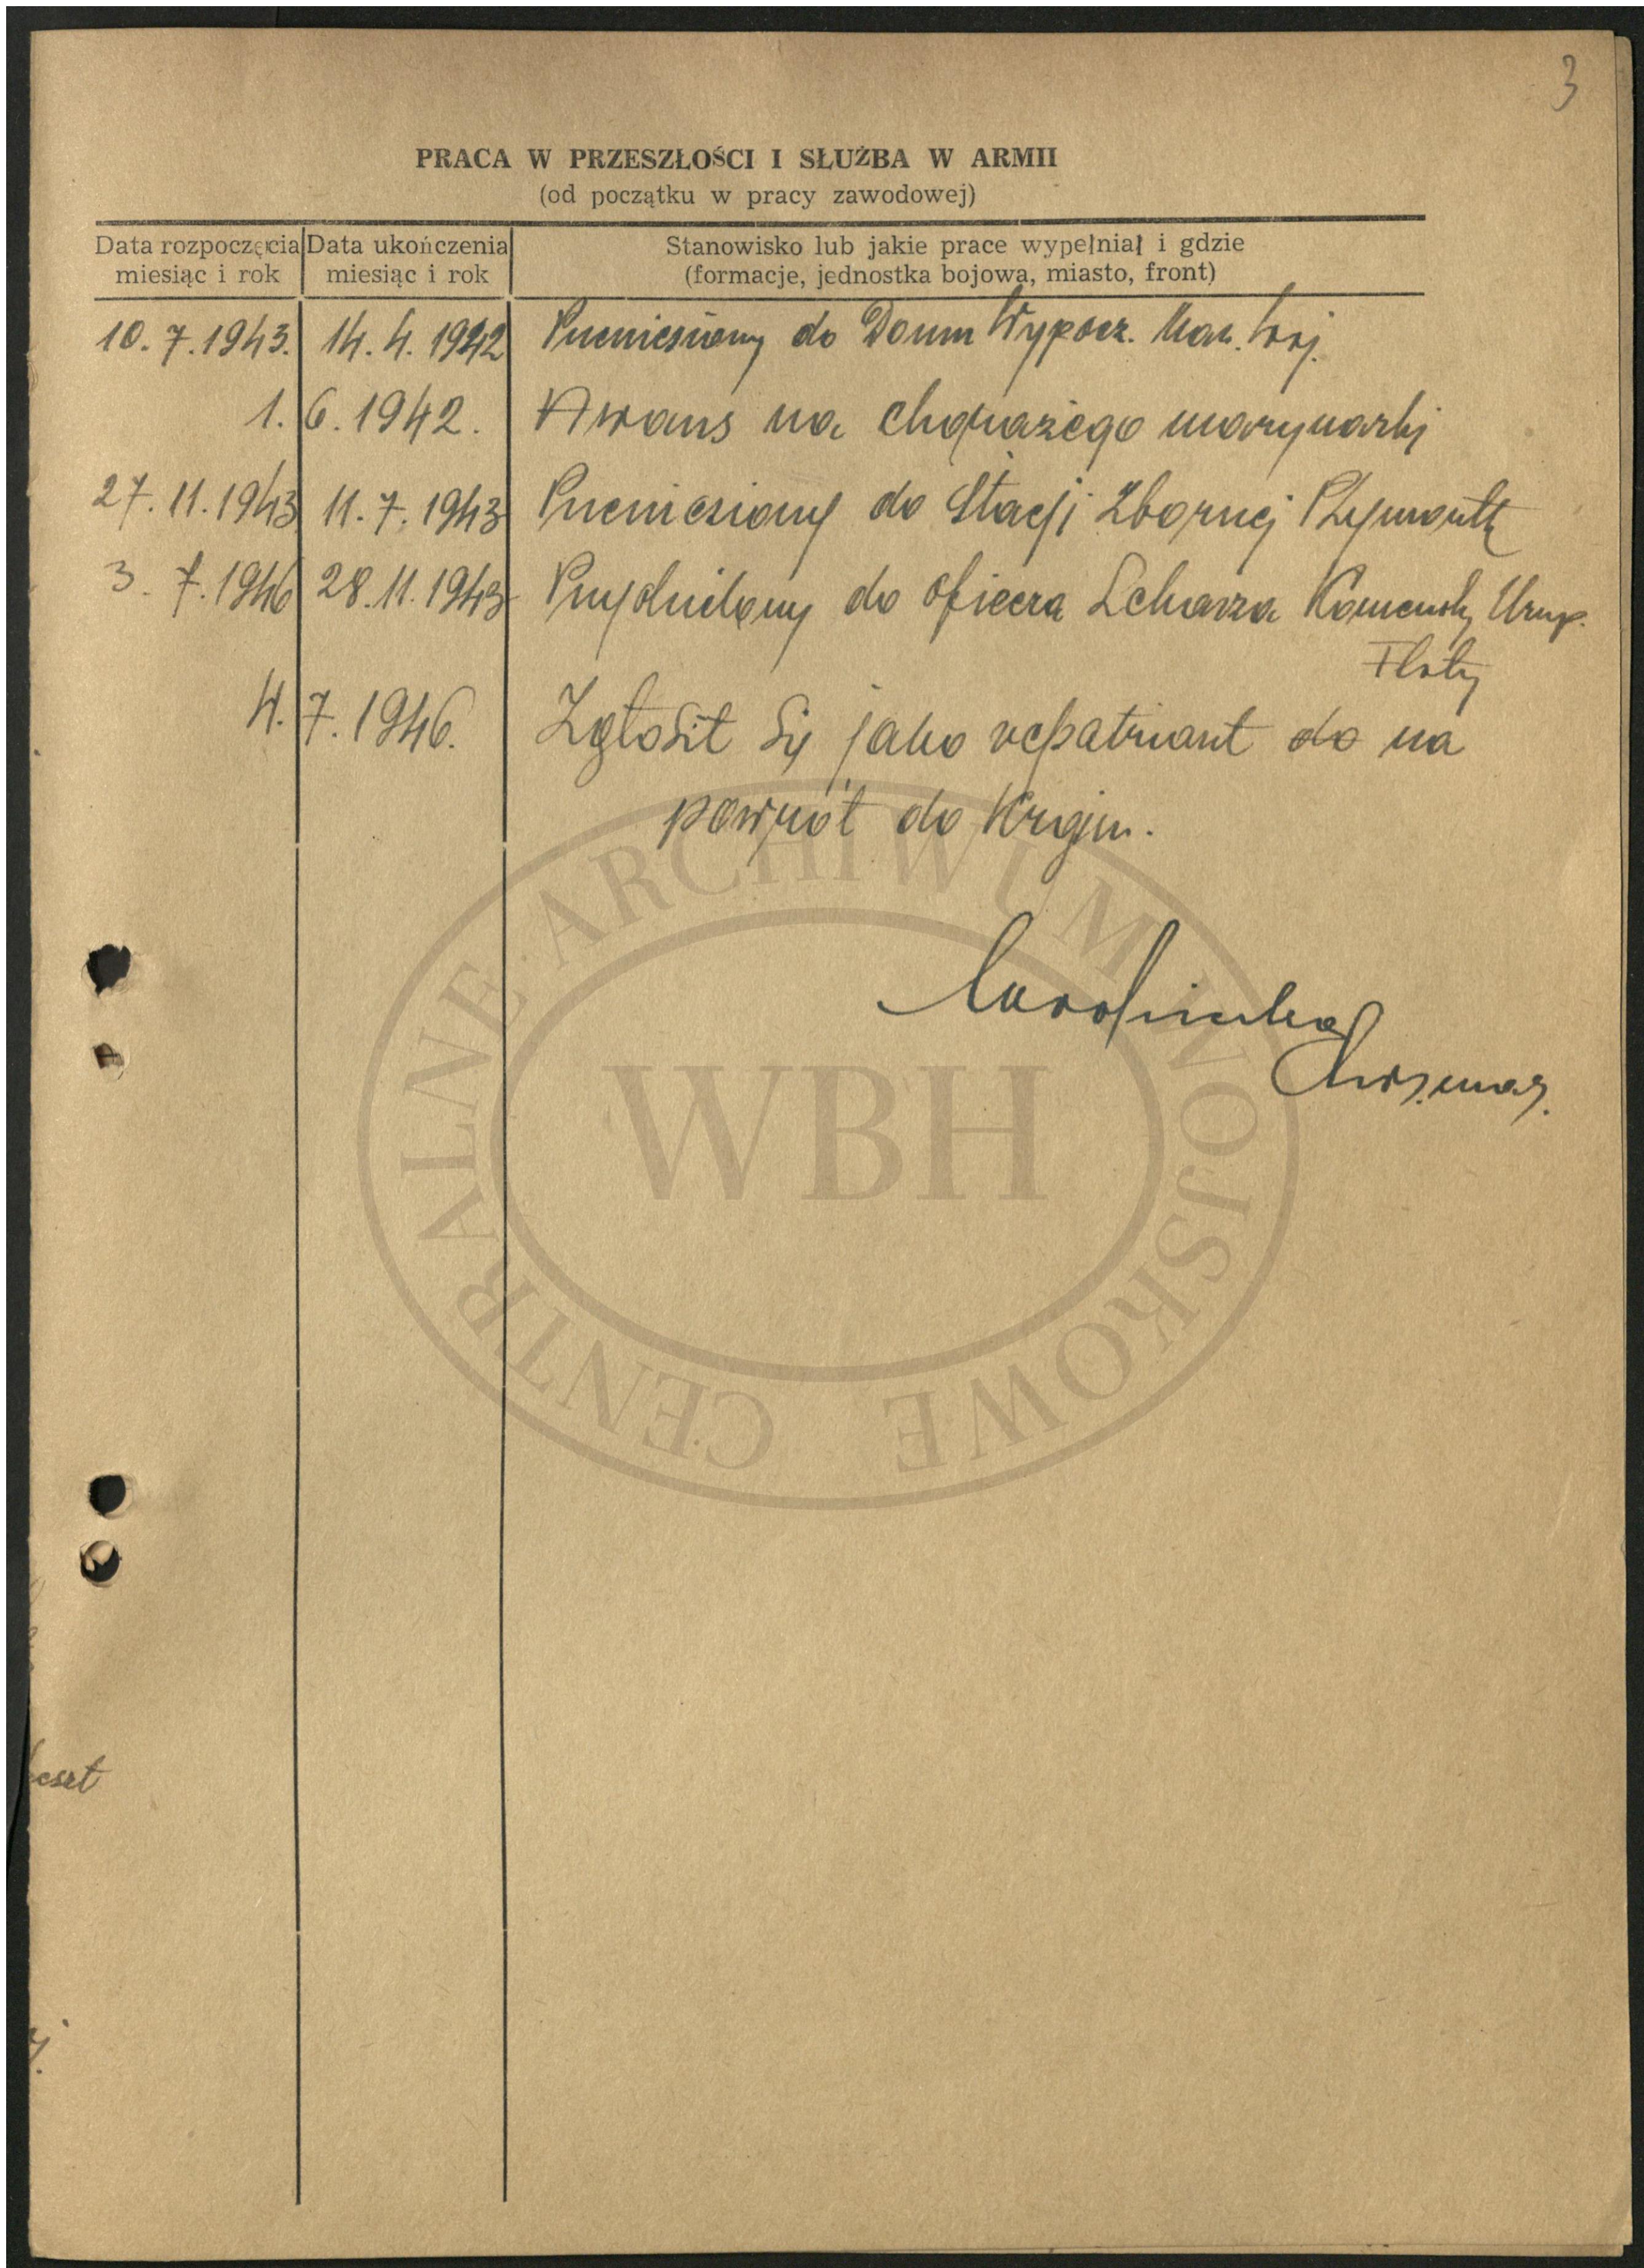 3
PRACA W PRZESZŁOŚCI I SŁUŻBA W ARMII
(od początku w pracy zawodowej)
Data rozpoczęcia miesiąc i rok | Data ukończenia miesiąc i rok | Stanowisko lub jakie prace wypełniał i gdzie (formacje, jednostka bojowa, miasto, front)
10. 7. 1943. 14. 4. 1942 Przeniesiony do Domu Wypocz. Mar. Woj.
1. 6. 1942. Awans na chorążego marynarki
27. 11. 1943 11. 7. 1943 Przeniesiony do Stacji Zbornej Plymouth
3. 7. 1946 28. 11. 1943 Przydzielony do oficera Lekarza Komendy Uzup.
Floty
4. 7. 1946. Zgłosił się jako repatriant do na
powrót do Kraju.
mar.
CENTRALNE ARCHIWUM WOJSKOWE
WBH